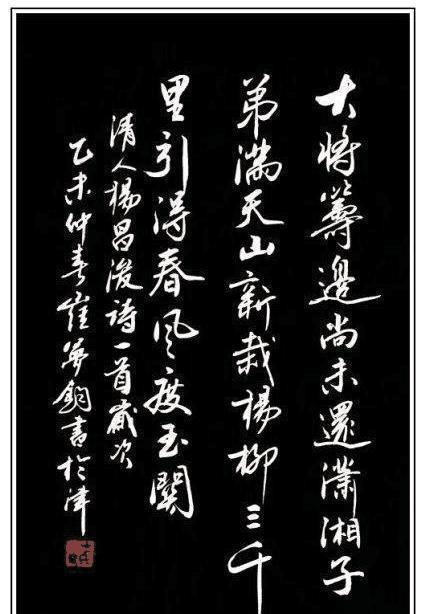 大將籌邊尚未還瀟湘子
弟滿天山新栽楊柳三千
里引得春風度玉關
清人楊昌浚詩一首歲次
乙未仲春崔鈞書於津